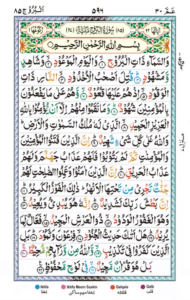 البروج ٨٥ ٥٩٦ عمّ ٣٠
بِسْمِ اللّٰهِ الرَّحْمٰنِ الرَّحِيْمِ
وَالسَّمَآءِ ذَاتِ الْبُرُوْجِ وَالْيَوْمِ الْمَوْعُوْدِ وَشَاهِدٍ
وَّمَشْهُوْدٍ قُتِلَ اَصْحٰبُ الْاُخْدُوْدِ النَّارِ ذَاتِ
الْوَقُوْدِ اِذْ هُمْ عَلَيْهَا قُعُوْدٌ وَّهُمْ عَلٰى مَا يَفْعَلُوْنَ
بِالْمُؤْمِنِيْنَ شُهُوْدٌ وَمَا نَقَمُوْا مِنْهُمْ اِلَّآ اَنْ يُّؤْمِنُوْا بِاللّٰهِ
الْعَزِيْزِ الْحَمِيْدِ الَّذِيْ لَهٗ مُلْكُ السَّمٰوٰتِ وَالْاَرْضِ
وَاللّٰهُ عَلٰى كُلِّ شَيْءٍ شَهِيْدٌ اِنَّ الَّذِيْنَ فَتَنُوا الْمُؤْمِنِيْنَ
وَالْمُؤْمِنٰتِ ثُمَّ لَمْ يَتُوْبُوْا فَلَهُمْ عَذَابُ جَهَنَّمَ وَلَهُمْ
عَذَابُ الْحَرِيْقِ اِنَّ الَّذِيْنَ اٰمَنُوْا وَعَمِلُوا الصّٰلِحٰتِ لَهُمْ
جَنّٰتٌ تَجْرِيْ مِنْ تَحْتِهَا الْاَنْهٰرُ ذٰلِكَ الْفَوْزُ الْكَبِيْرُ
اِنَّ بَطْشَ رَبِّكَ لَشَدِيْدٌ اِنَّهٗ هُوَ يُبْدِئُ وَيُعِيْدُ
وَهُوَ الْغَفُوْرُ الْوَدُوْدُ ذُو الْعَرْشِ الْمَجِيْدُ فَعَّالٌ لِّمَا
يُرِيْدُ هَلْ اَتٰىكَ حَدِيْثُ الْجُنُوْدِ فِرْعَوْنَ وَثَمُوْدَ بَلِ الَّذِيْنَ
كَفَرُوْا فِيْ تَكْذِيْبٍ وَّاللّٰهُ مِنْ وَّرَآئِهِمْ مُّحِيْطٌ
بَلْ هُوَ قُرْاٰنٌ مَّجِيْدٌ فِيْ لَوْحٍ مَّحْفُوْظٍ
Ikhfa Ikhfa Meem Saakin Qalqala Qalb